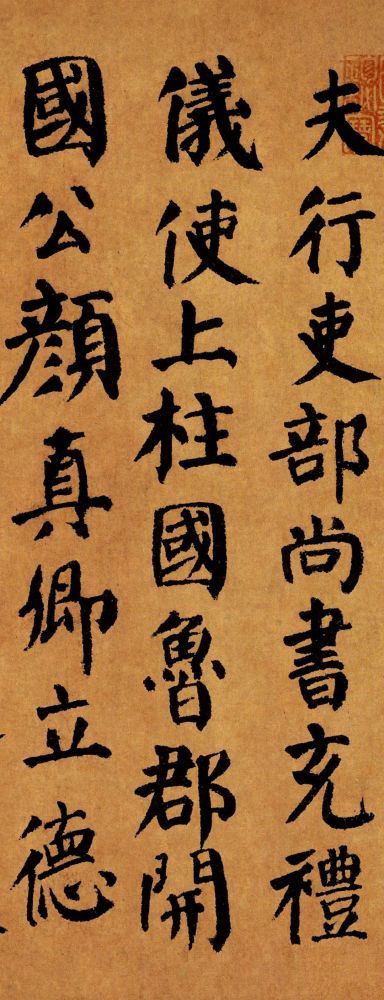 夫行吏部尚書充禮
儀使上柱國魯郡開
國公顔真卿立德